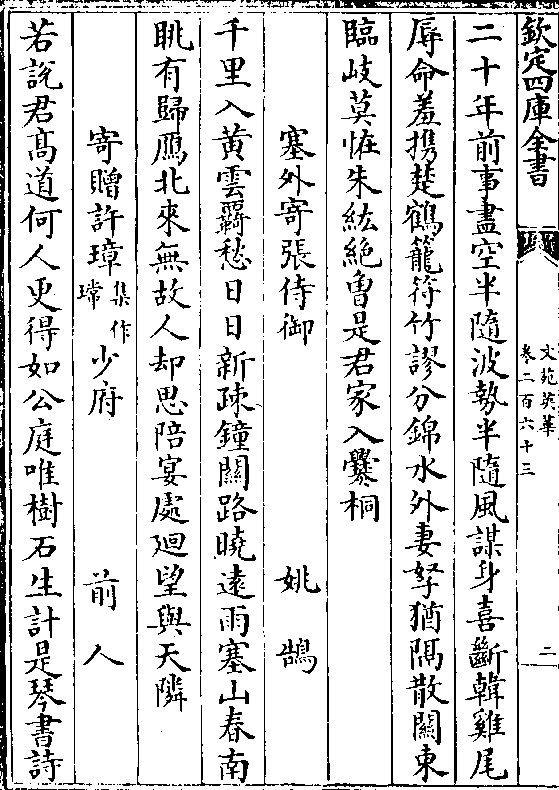 欽定四庫全書
文苑英華
卷二百六十三
二
二十年前事盡空半隨波勢半隨風謀身喜斷韓雞尾
辱命羞攜楚鶴籠符竹謬分錦水外妻孥猶隔散關東
臨岐莫怪朱絃絕曾是君家入爨桐
塞外寄張侍御 姚鵠
千里入黃雲羇愁日日新疎鐘關路曉遠雨塞山春南
眺有歸鴈北來無故人却思陪宴處廻望與天隣
寄贈許璋集作瑺少府 前人
若說君高道何人更得如公庭唯樹石生計是琴書詩